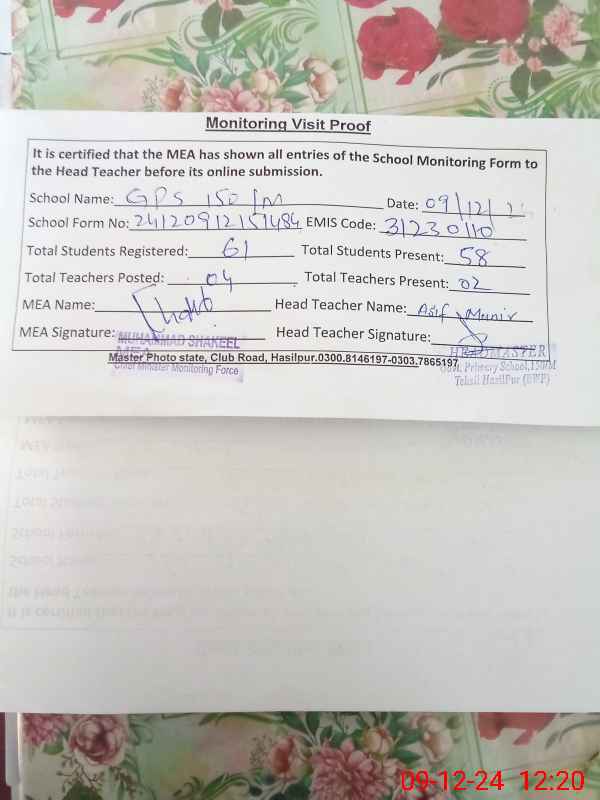 Monitoring Visit Proof
It is certified that the MEA has shown all entries of the School Monitoring Form to
the Head Teacher before its online submission.
School Name: GPS 150/M Date: 09/12/2
School Form No: 24120912151484 EMIS Code: 31230110
Total Students Registered: 61 Total Students Present: 58
Total Teachers Posted: 04 Total Teachers Present: 02
MEA Name: Head Teacher Name: Asif Munir
MEA Signature: Head Teacher Signature:
MUHAMMAD SHAKEEL
MEA
Chief Minister Monitoring Force
HEADMASTER
Govt. Primary School, 150/M
Tehsil HasilPur (BWP)
Master Photo state, Club Road, Hasilpur.0300.8146197-0303.7865197
09-12-24 12:20